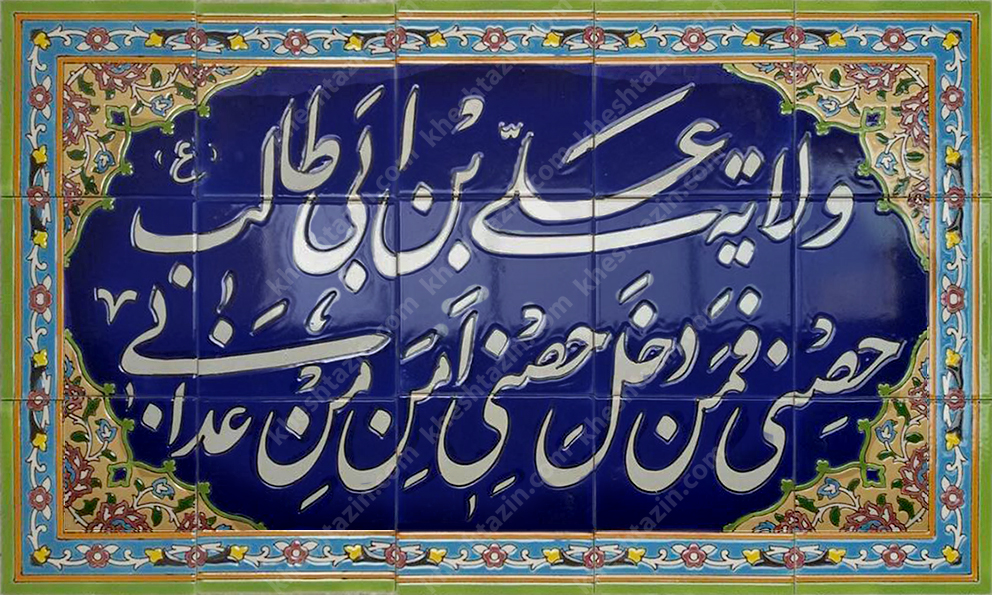 ولایة علیّ بن ابی طالب (ع)
حصنی فمن دخل حصنی امن من عذابی
kheshtazin.com